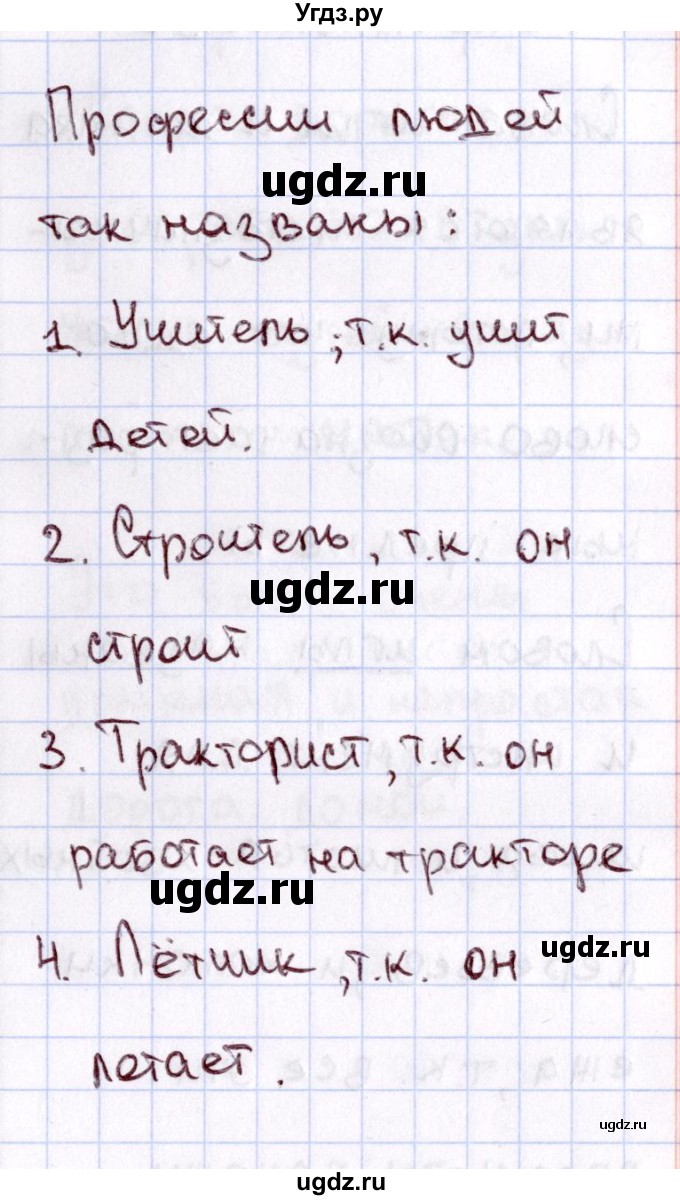 Угдз.ру
Профессии людей
ugdz.ru
так названы:
1. Учитель, т.к. учит
детей.
2. Строитель, т.к. он
ugdz.ru
строит
3. Тракторист, т.к. он
работает на тракторе
ugdz.ru
ugdz.ru
4. Лётчик, т.к. он
летает.
ugdz.ru
ugdz.ru